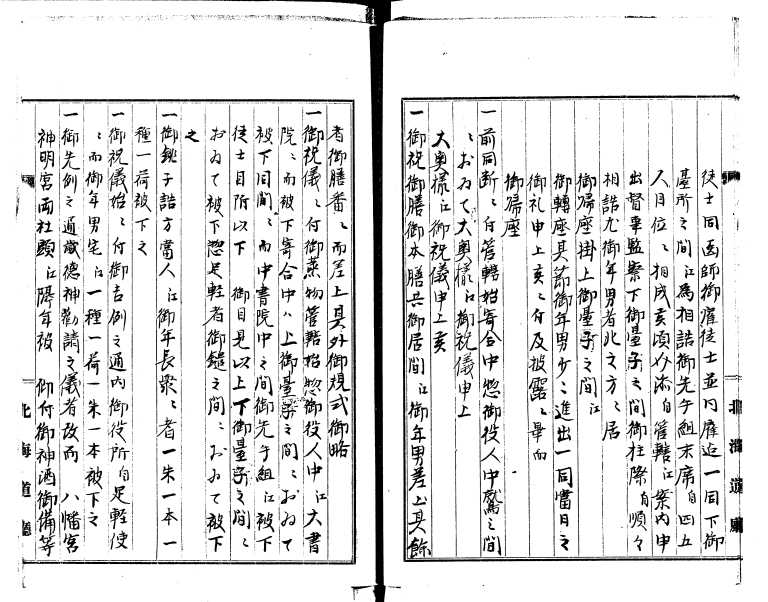 徒士同画師御雇徒士並同雇迄一同下御
臺所之間江為相詰御先手組末席自四五
人目位ニ相成亥頃添自管轄江案内申
出督畢監察下御臺子之間御柱際自順々
相詰尤御年男者北之方ニ居
御帰座掛上御臺子之間江
御轉座具節御年男少々進出一同當日之
御礼申上亥ニ付及披露ニ畢而
御帰座
一前同断ニ付管轄始寄合中惣御役人中鷲之間
ニおゐて大奥様江御祝儀申上
大奥様江御祝儀申上亥
一御祝御膳御本膳共御居間江御年男差上其餘
者御膳番ニ而差上其外御規式御略
一御祝儀ニ付御蒸物管轄始惣御役人中江大書
院ニ而被下寄合中ハ上御臺子之間ニおゐて
被下同間ニ而中書院中之間御先手組江被下
徒士目附以下御目見以上下御臺子之間ニ
おゐて被下惣足軽者御鑓之間ニおゐて被下
之
一御銚子詰方當人江御年長衆ニ者一朱一本一
種一荷被下之
一御祝儀始ニ付御吉例之通内御役所自足軽使
ニ而御年男宅江一種一荷一朱一本被下之
一御先例之通歳徳神勧請之儀者改而八幡宮
神明宮両社頭江隔年被仰付御神酒御備等
北海道廳
北海道廳